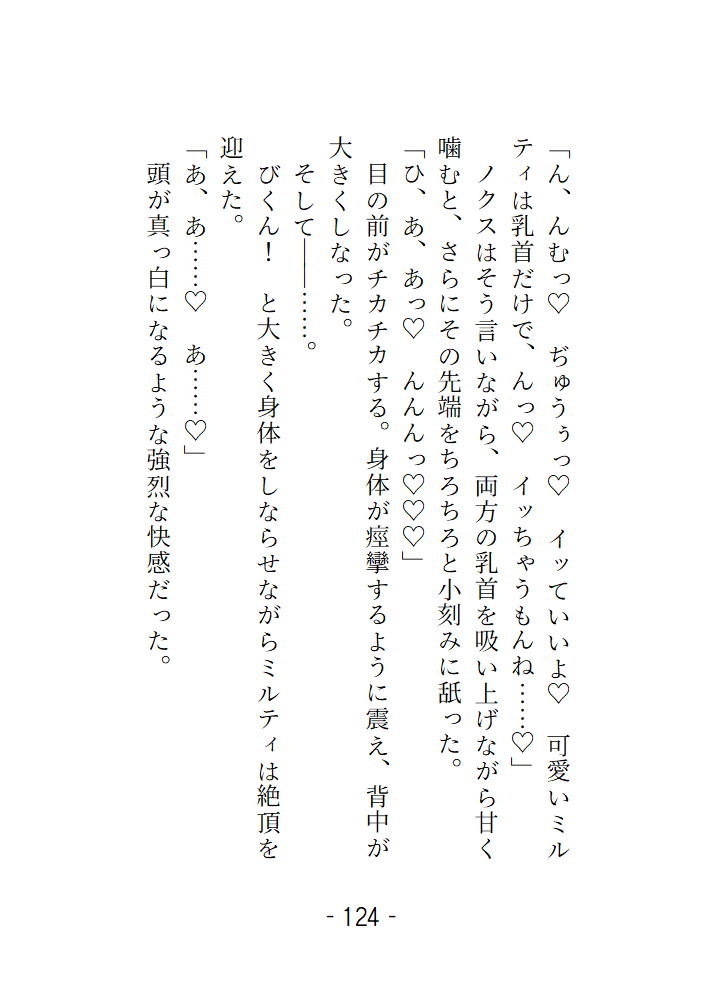 「ん、んむっ♡　ぢゅうぅっ♡　イッていいよ♡　可愛いミル
ティは乳首だけで、んっ♡　イッちゃうもんね……♡」
　ノクスはそう言いながら、両方の乳首を吸い上げながら甘く
噛むと、さらにその先端をちろちろと小刻みに舐った。
「ひ、あ、あっ♡　んんんっ♡♡♡」
　目の前がチカチカする。身体が痙攣するように震え、背中が
大きくしなった。
　そして――……。
　びくん！　と大きく身体をしならせながらミルティは絶頂を
迎えた。
「あ、あ……♡　あ……♡」
　頭が真っ白になるような強烈な快感だった。
- 124 -